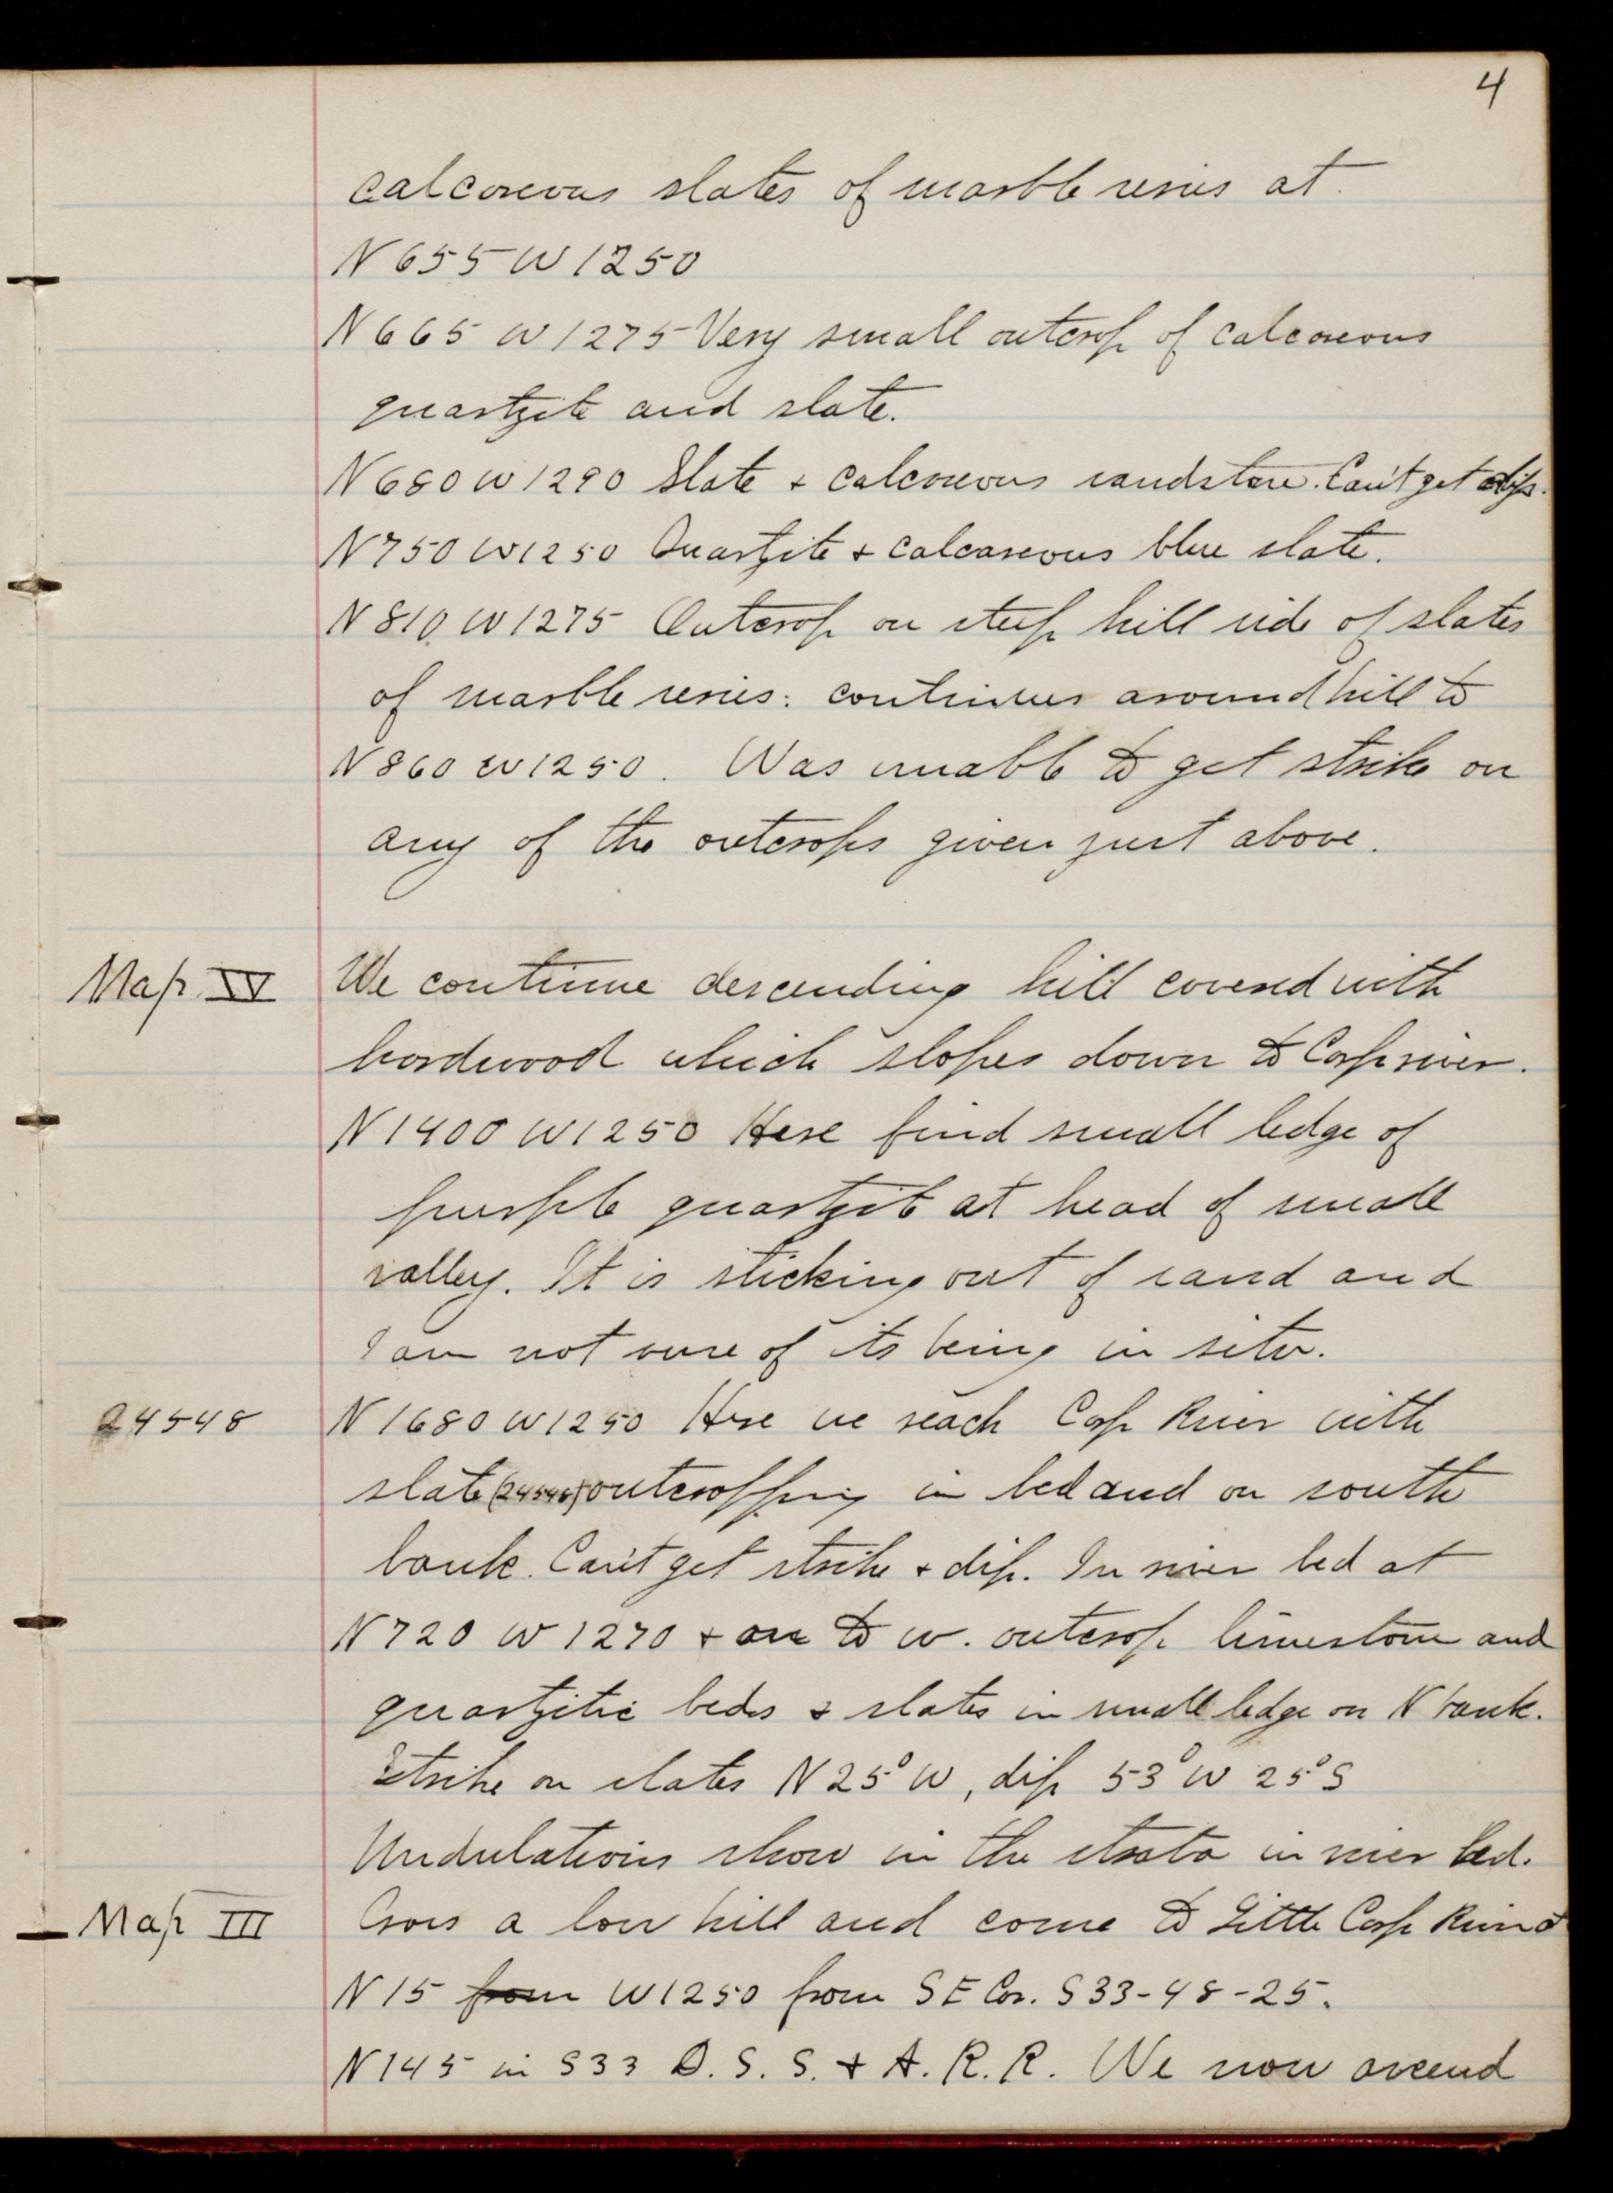 4
calcareous slates of marble series at
N 655 W 1250
N 665 W 1275 Very small outcrop of calcareous
quartzite and slate.
N 680 W 1290 Slate + calcareous sandstone. Can't get dip.
N 750 W 1250 Quartzite + calcareous blue slate.
N 810 W 1275 Outcrop on steep hill side of slates
of marble series. continues around hill to
N 860 W 1250. Was unable to get strike on
any of the outcrops given just above.
Map IV We continue descending hill covered with
hardwood which slopes down to Carp river.
N 1400 W 1250 Here find small ledge of
purple quartzite at head of small
valley. It is sticking out of sand and
I am not sure of its being in situ.
24548 N 1680 W 1250 Here we reach Carp River with
slate (24548) outcropping in bed and on south
bank. Can't get strike + dip. In river bed at
N 720 W 1270 + on to W. outcrop limestone and
quartzitic beds & slates in small ledge on N bank.
Strike on slates N 25° W, dip 53° W 25° S
Undulations show in the strata in river bed.
Map III Cross a low hill and come to Little Carp River at
N 15 from W 1250 from S E Cor. S 33-48-25.
N 145 in S 33 D. S. S. & A. R. R. We now ascend